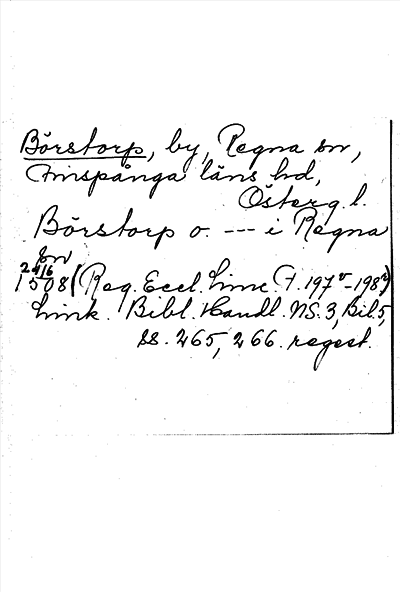 Börstorp, by, Regna sn,
Finspånga läns hd,
Österg. l.
Börstorp o. --- i Regna
sn
24/6
1508 (Reg. Eccl. Linc. f. 197v-198r)
Link. Bibl. Handl. NS. 3, Bil. 5,
ss. 265, 266. regest.